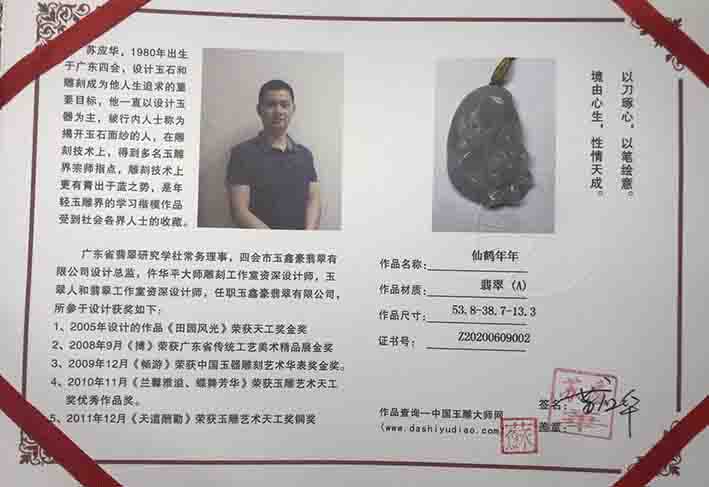 苏应华，1980年出生
于广东四会，设计玉石和
雕刻成为他人生追求的重
要目标，他一直以设计玉
器为主，被行内人士称为
揭开玉石面纱的人，在雕
刻技术上，得到多名玉雕
界宗师指点，雕刻技术上
更有青出于蓝之势，是年
轻玉雕界的学习楷模作品
受到社会各界人士的收藏。
广东省翡翠研究学社常务理事，四会市玉鑫豪翡翠有
限公司设计总监，作华平大师雕刻工作室资深设计师，玉
翠人和翡翠工作室资深设计师，任职玉鑫豪翡翠有限公司，
所参于设计获奖如下：
1、2005年设计的作品《田园风光》荣获天工奖金奖
2、2008年9月《博》荣获广东省传统工艺美术精品展金奖
3、2009年12月《畅游》荣获中国玉器雕刻艺术华表奖金奖。
4、2010年11月《兰馨雅逾、蝶舞芳华》荣获玉雕艺术天工
奖优秀作品奖。
5、2011年12月《天道酬勤》荣获玉雕艺术天工奖铜奖
以刀琢心，以笔绘意。
境由心生，性情天成。
作品名称： 仙鹤年年
作品材质： 翡翠（A）
作品尺寸： 53.8-38.7-13.3
证书号： Z20200609002
签名：
作品查询一中国玉雕大师网
(www.dashiyudiao.com) 盖章：
蘇